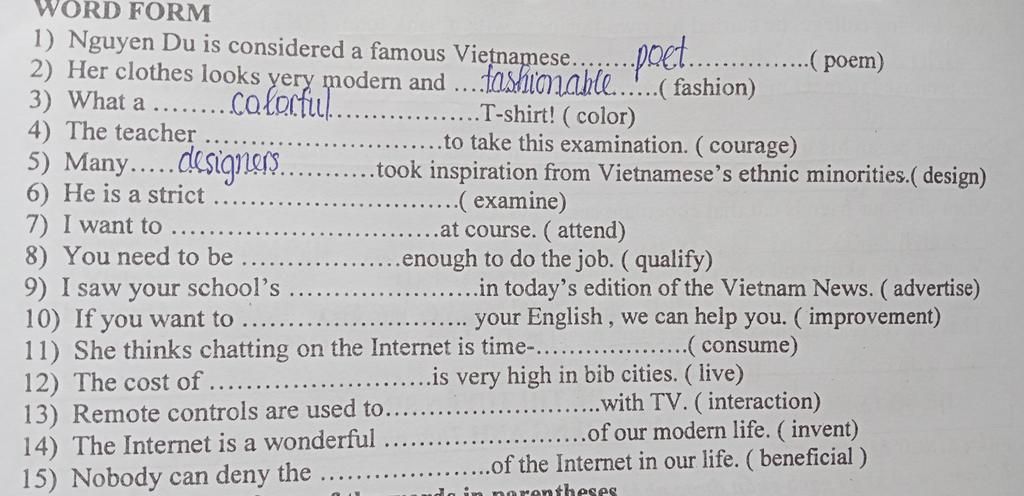 WORD FORM
1) Nguyen Du is considered a famous Vietnamese........poet................( poem)
2) Her clothes looks very modern and ....fashionable......( fashion)
3) What a .........colorful....................T-shirt! ( color)
4) The teacher ...............................to take this examination. ( courage)
5) Many.....designers............took inspiration from Vietnamese's ethnic minorities.( design)
6) He is a strict ................................( examine)
7) I want to ...................................at course. ( attend)
8) You need to be .....................enough to do the job. ( qualify)
9) I saw your school's .........................in today's edition of the Vietnam News. ( advertise)
10) If you want to ............................. your English , we can help you. ( improvement)
11) She thinks chatting on the Internet is time-....................( consume)
12) The cost of .............................is very high in bib cities. ( live)
13) Remote controls are used to............................with TV. ( interaction)
14) The Internet is a wonderful ..........................of our modern life. ( invent)
15) Nobody can deny the ......................of the Internet in our life. ( beneficial )
in parentheses